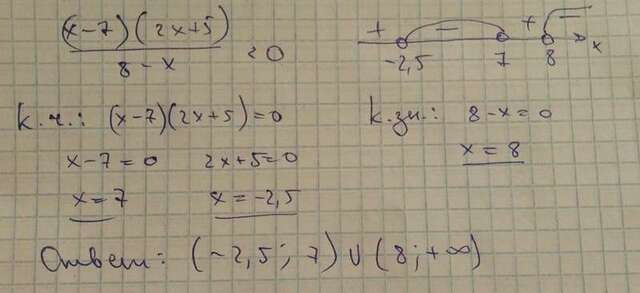 (x-7)(2x+5)
8-x
<0
+ - + -
-2,5 7 8 x
к.ч.: (x-7)(2x+5)=0
к.зн.: 8-x=0
x-7=0 2x+5=0
x=8
x=7 x=-2,5
Ответ: (-2,5; 7) ∪ (8; +∞)